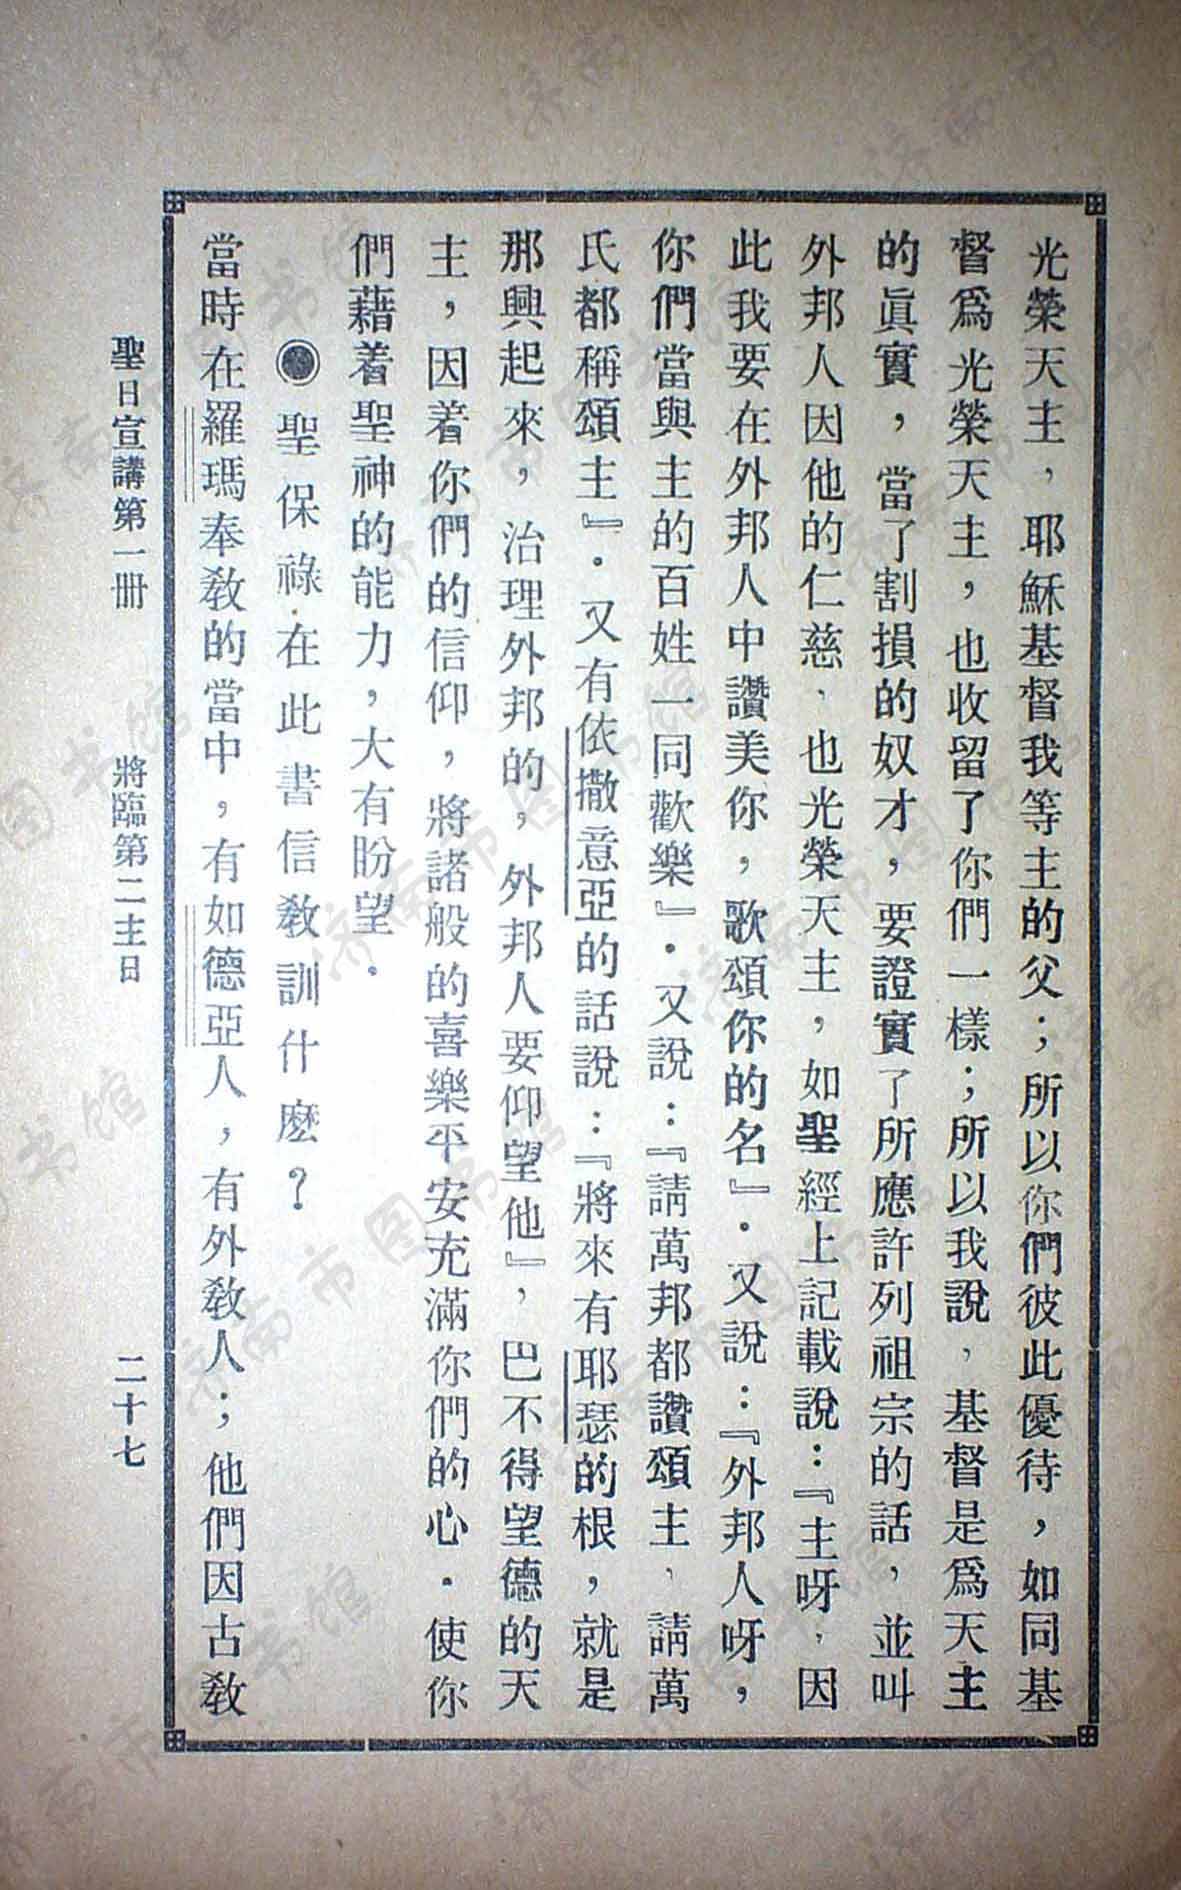 光榮天主，耶穌基督我等主的父；所以你們彼此優待，如同基
督爲光榮天主，也收留了你們一樣；所以我說，基督是爲天主
的眞實，當了割損的奴才，要證實了所應許列祖宗的話，並叫
外邦人因他的仁慈，也光榮天主，如聖經上記載說：『主呀，因
此我要在外邦人中讚美你，歌頌你的名』．又說：『外邦人呀，
你們當與主的百姓一同歡樂』．又說：『請萬邦都讚頌主，請萬
氏都稱頌主』．又有依撒意亞的話說：『將來有耶瑟的根，就是
那興起來，治理外邦的，外邦人要仰望他』，巴不得望德的天
主，因着你們的信仰，將諸般的喜樂平安充滿你們的心．使你
們藉着聖神的能力，大有盼望．
◉聖保祿·在此書信教訓什麽？
當時在羅瑪奉教的當中，有如德亞人，有外教人；他們因古教
聖日宣講第一册　將臨第二主日　二十七
济南市图书馆